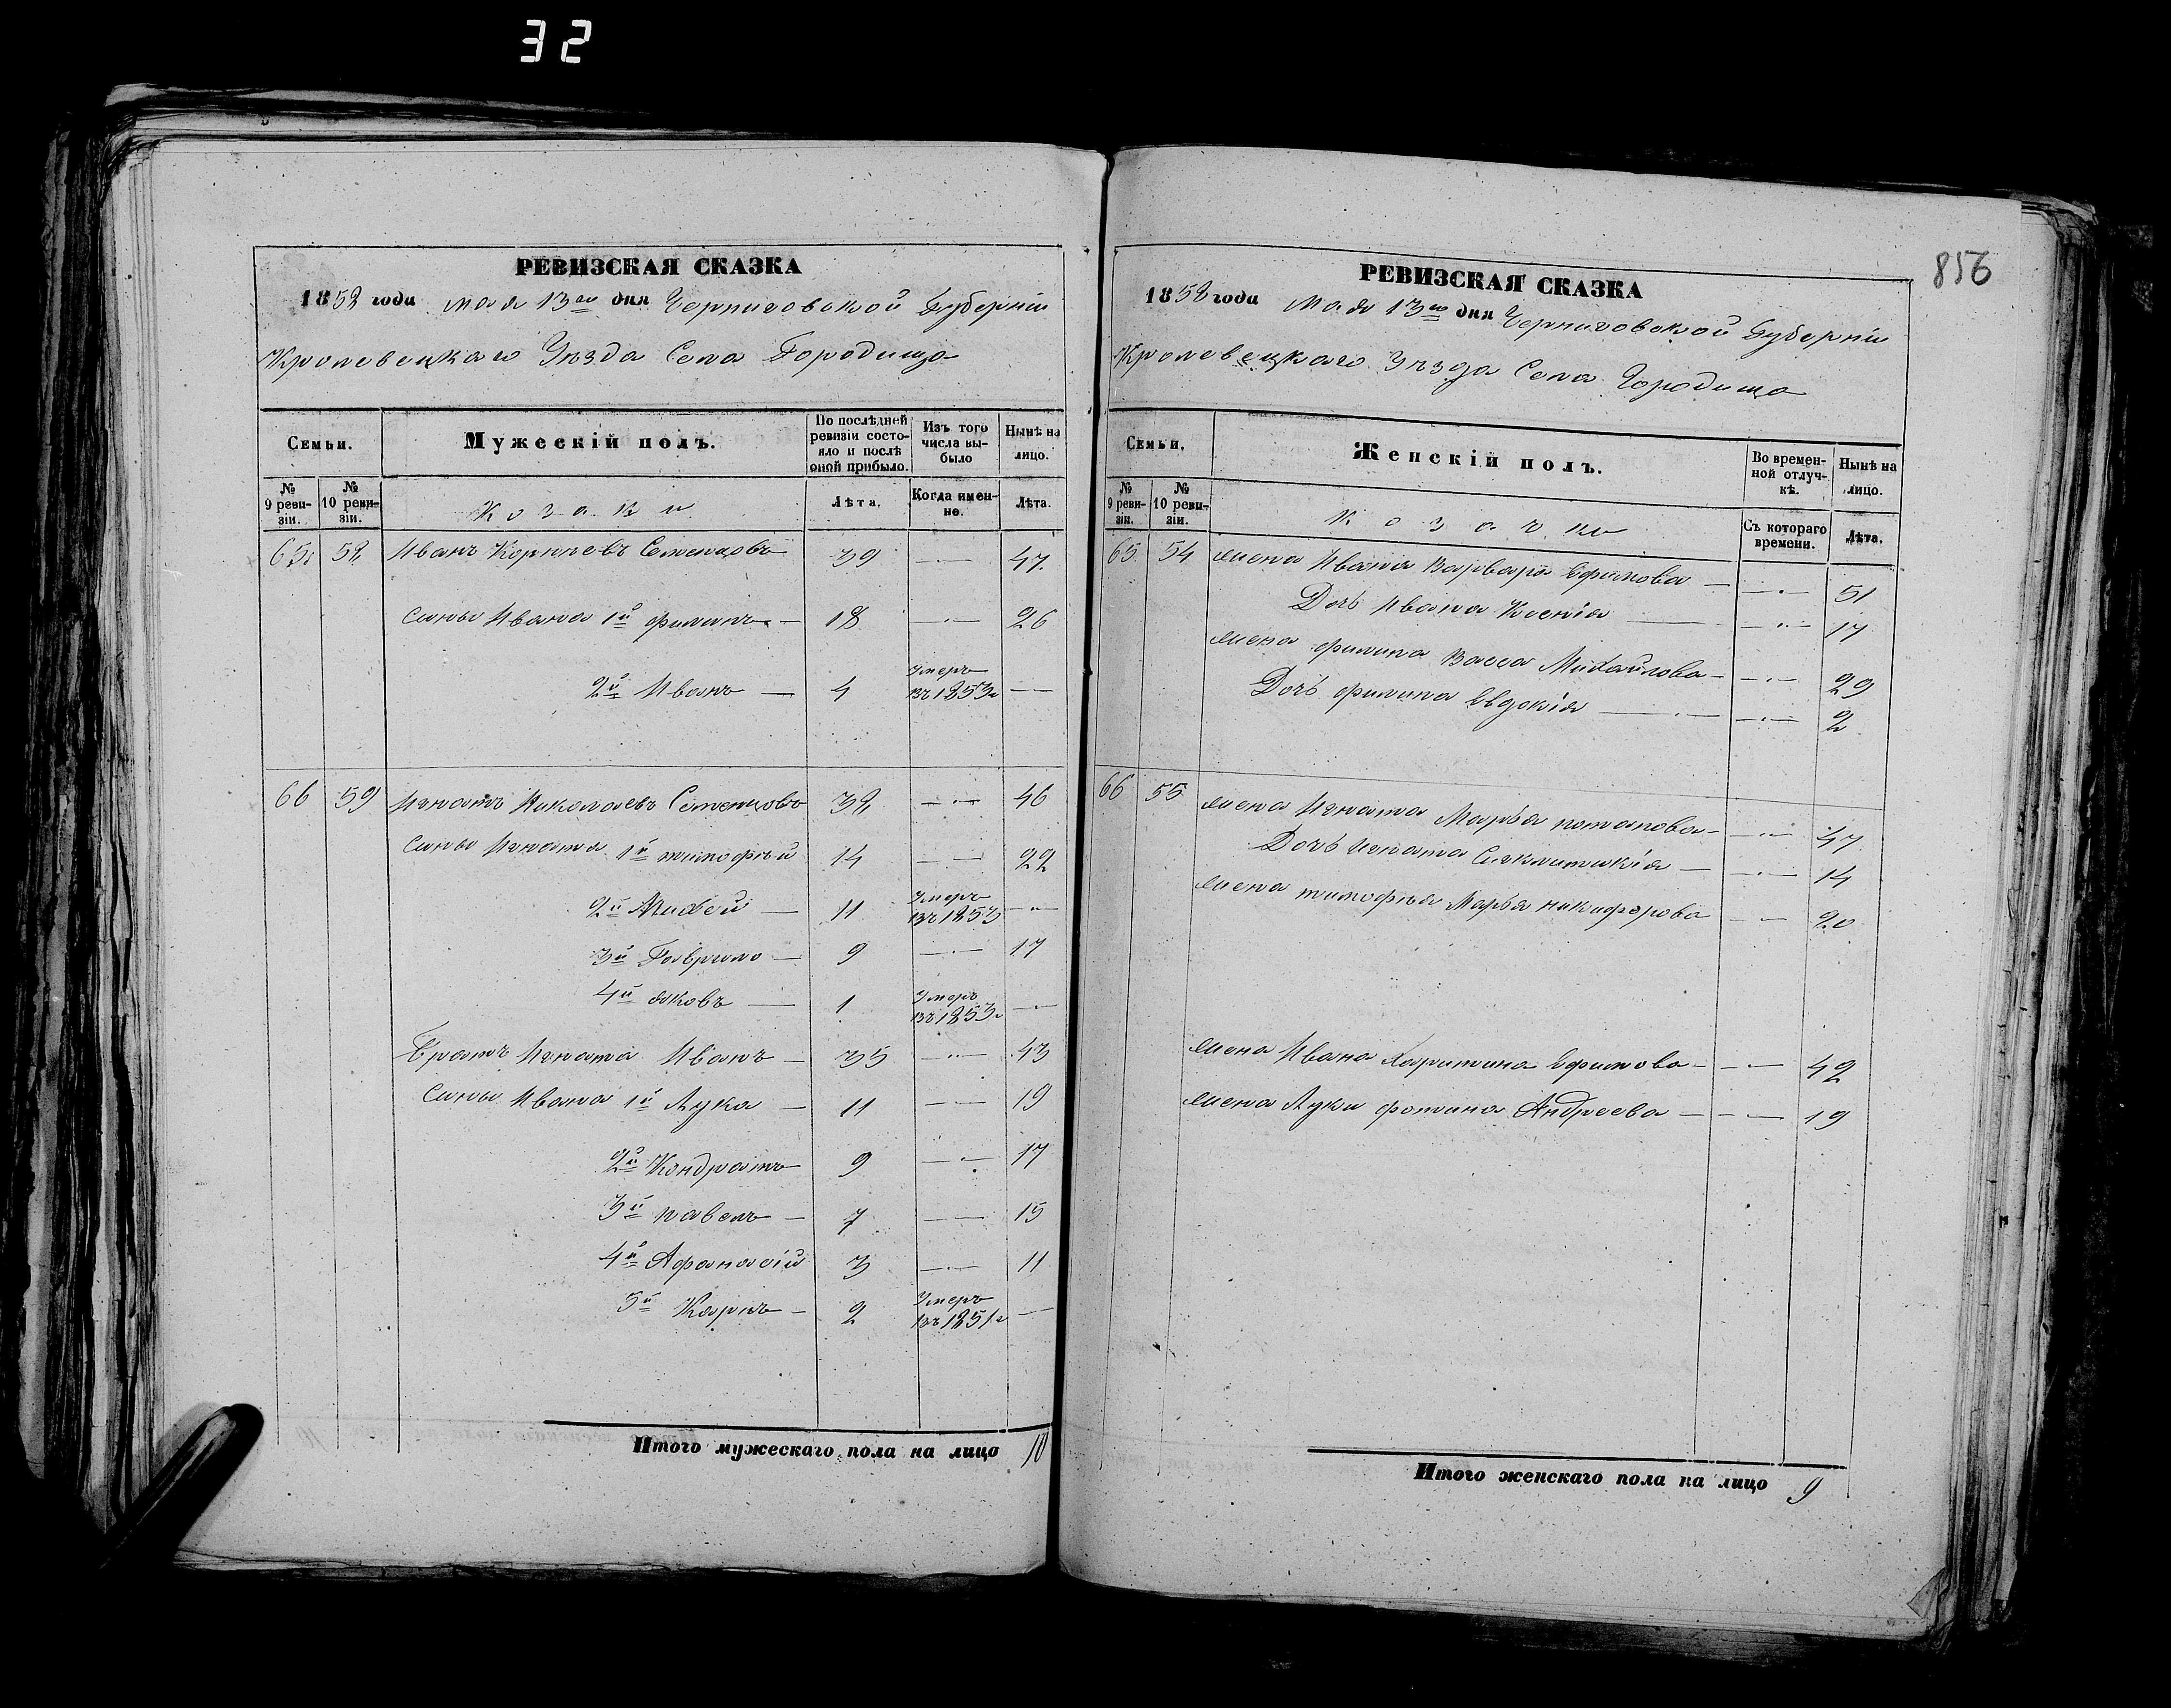 32
856
РЕВИЗСКАЯ СКАЗКА
1858 года мая 13го дня Черниговской Губерніи
Кролевецкаго Уѣзда Села Городища
Семьи.
Мужескій полъ.
По послѣдней ревизіи состояло и послѣ оной прибыло.
Изъ того числа выбыло
Нынѣ на лицо.
№ 9 ревизіи.
№ 10 ревизіи.
Козаки
Лѣта.
Когда именно.
Лѣта.
65 58 Иванъ Корнѣевъ Семенцовъ 39 — 47
Сыны Ивана 1й филипъ — 18 — 26
2й Иванъ — 4 Умеръ въ 1853г —
66 59 Игнатъ Николаевъ Семенцовъ 38 — 46
Сыны Игната 1й тимофѣй 14 — 22
2й Михей — 11 Умеръ въ 1853 —
3й Гаврило — 9 — 17
4й яковъ — 1 Умеръ въ 1853г —
Братъ Игната Иванъ — 35 — 43
Сыны Ивана 1й Лука — 11 — 19
2й Кондратъ 9 — 17
3й павелъ — 7 — 15
4й Афанасій 3 — 11
5й Карпъ — 2 Умеръ въ 1851г —
Итого мужескаго пола на лицо 10
РЕВИЗСКАЯ СКАЗКА
1858 года Мая 13го дня Черниговской Губерніи
Кролевецкаго Уѣзда Села Городища
Семьи.
Женскій полъ.
Во временной отлучкѣ.
Нынѣ на лицо.
№ 9 ревизіи.
№ 10 ревизіи.
Козачки
Съ котораго времени.
Лѣта.
65 54 жена Ивана Варвара Ефимова — — 51
Дочь Ивана Ксенія — — 17
жена филипа Васса Михайлова — — 29
Дочь филипа Евдокія — — 2
66 55 жена Игната Марья потапова — — 47
Дочь Игната Синклитикія — — 14
жена тимофѣя Марья никифорова — 20
жена Ивана Харитина Ефимова — — 42
жена Луки фотина Андреева — — 19
Итого женскаго пола на лицо 9